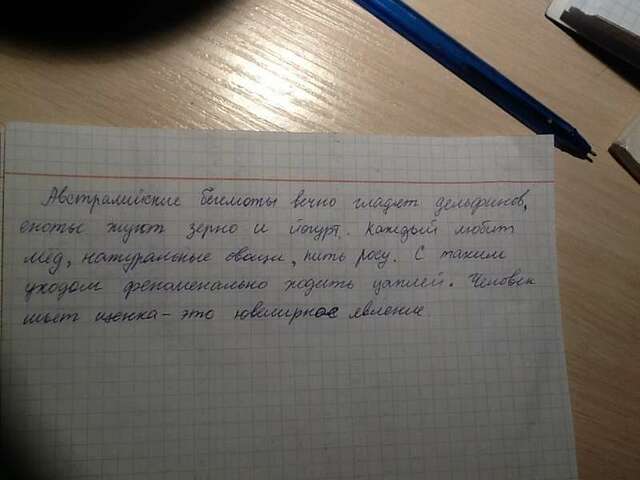 Австралийские бегмоты вечно гладят дельфинов,
еноты жуют зерно и йогурт. Каждый любит
мёд, натуральные овощи, пить росу. С таким
уходом феноменально ходить цаплей. Человек
шьет щенка – это ювелирное явление.